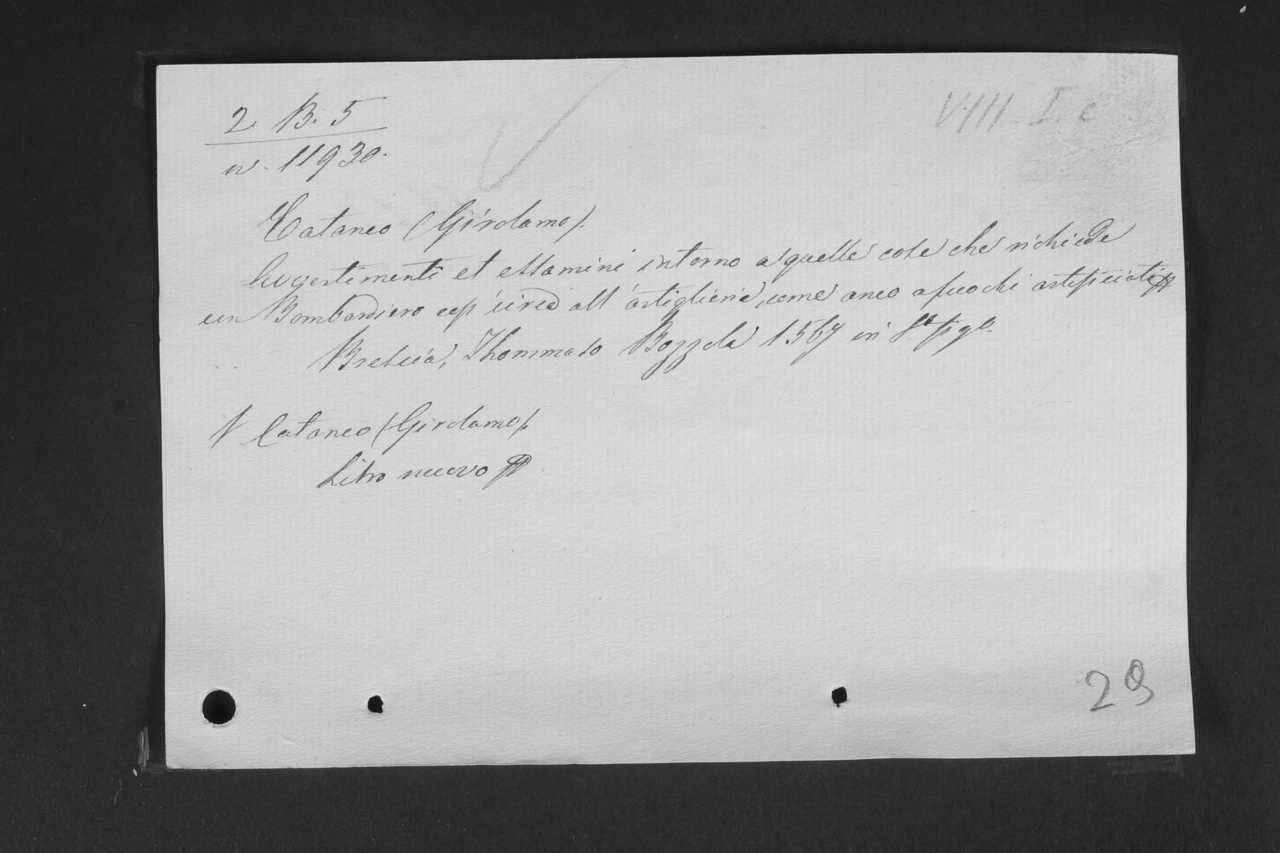 2 B. 5
VIII. I. c
n. 11930.
Cataneo (Girolamo).
Avvertimenti et essamini intorno a quelle cose che richiede
un Bombardiero così circa all' artiglieria, come anco a fuochi artificiati
Brescia, Thommaso Bozzola 1567 in 4º fig.
V Cataneo (Girolamo).
Libro nuovo
29